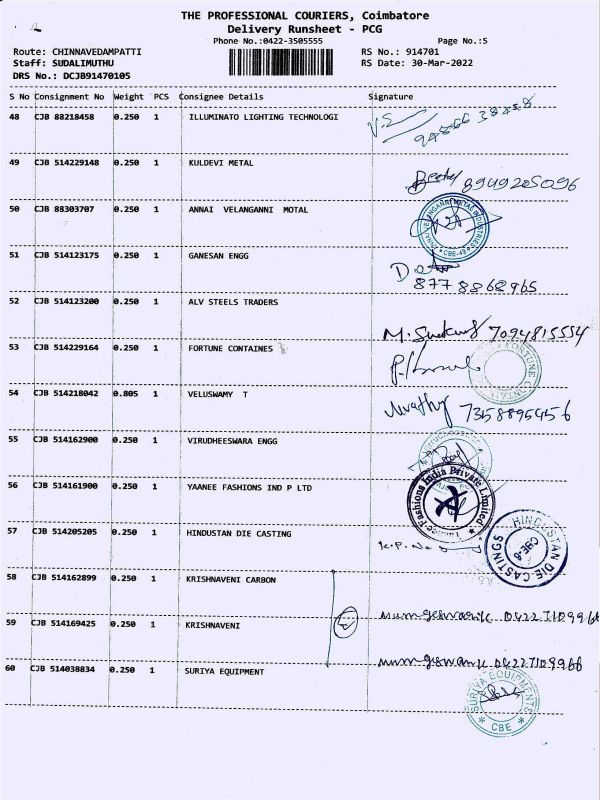 THE PROFESSIONAL COURIERS, Coimbatore
Delivery Runsheet - PCG
Phone No.:0422-3505555 Page No.:5
Route: CHINNAVEDAMPATTI RS No.: 914701
Staff: SUDALIMUTHU RS Date: 30-Mar-2022
DRS No.: DCJB91470105
S No Consignment No Weight PCS Consignee Details Signature
48 CJB 88218458 0.250 1 ILLUMINATO LIGHTING TECHNOLOGI
49 CJB 514229148 0.250 1 KULDEVI METAL
8949205096
50 CJB 88303707 0.250 1 ANNAI VELANGANNI MOTAL
ANNAI VELANGANNI METAL INDUSTRIES
CBE-49
51 CJB 514123175 0.250 1 GANESAN ENGG
8778862965
52 CJB 514123200 0.250 1 ALV STEELS TRADERS
7094815554
53 CJB 514229164 0.250 1 FORTUNE CONTAINES
FORTUNE
54 CJB 514218042 0.805 1 VELUSWAMY T
7358895456
55 CJB 514162900 0.250 1 VIRUDHEESWARA ENGG
56 CJB 514161900 0.250 1 YAANEE FASHIONS IND P LTD
Yaanee Fashions India Private Limited
57 CJB 514205205 0.250 1 HINDUSTAN DIE CASTING
HINDUSTAN DIE-CASTINGS
CBE-6
58 CJB 514162899 0.250 1 KRISHNAVENI CARBON
0422 7109966
59 CJB 514169425 0.250 1 KRISHNAVENI
04227109966
60 CJB 514038834 0.250 1 SURIYA EQUIPMENT
SURIYA EQUIPMENTS
CBE